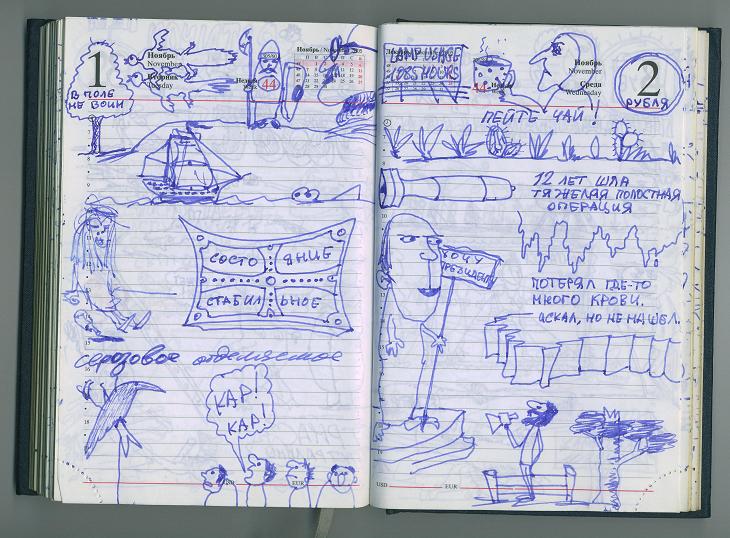 1
Ноябрь
November
Вторник
Tuesday
В ПОЛЕ
НЕ ВОИН
Неделя
Week
44
Ноябрь / November 2005
СОСТО ЯНИЕ
СТАБИЛ ЬНОЕ
серозовое отделяемое
КАР!
КАР!
USD
EUR
LAMP USAGE
1085 HOURS
44
Ноябрь
November
Среда
Wednesday
2
РУБЛЯ
ПЕЙТЕ ЧАЙ!
12 ЛЕТ ШЛА
ТЯЖЕЛАЯ ПОЛОСТНАЯ
ОПЕРАЦИЯ
ХОЧУ
ПОТЕРЯЛ ГДЕ-ТО
МНОГО КРОВИ.
ИСКАЛ, НО НЕ НАШЕЛ.
USD
EUR